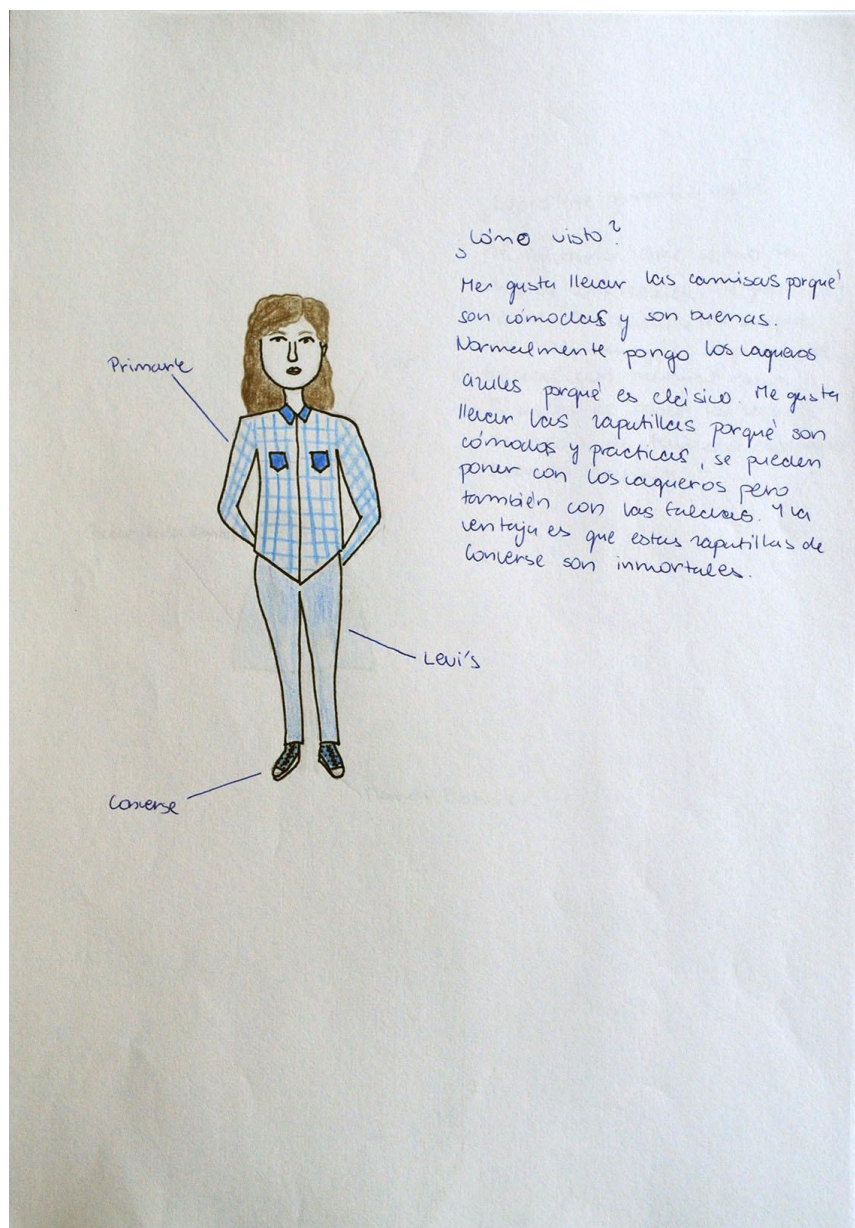 ¿Cómo visto?
Me gusta llevar las camisas porqué
son cómodas y son buenas.
Normalmente pongo los vaqueros
azules porqué es clásico. Me gusta
llevar las zapatillas porqué son
cómodas y practicas, se pueden
poner con los vaqueros pero
también con las faldas. Y la
ventaja es que estas zapatillas de
Converse son inmortales.
Primark
Levi's
Converse